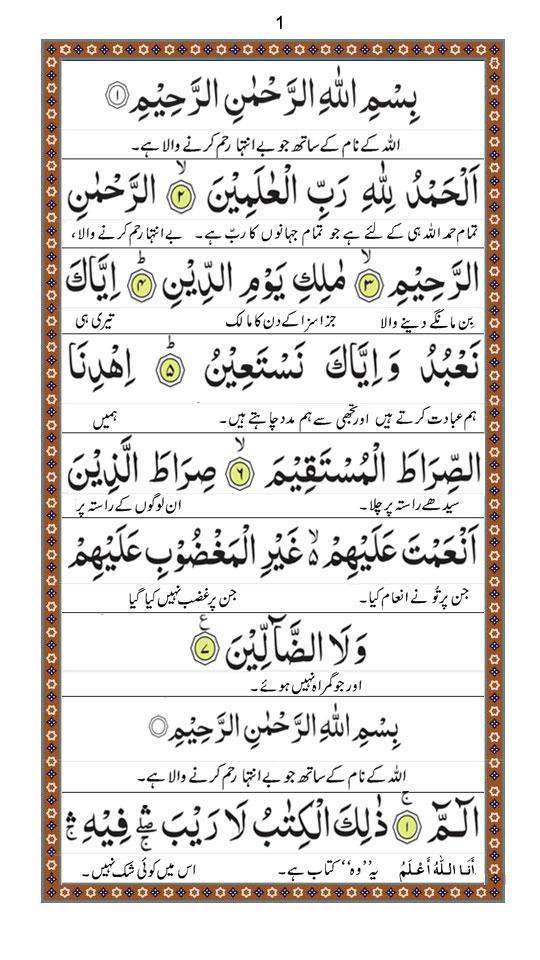 1
بِسْمِ اللّٰهِ الرَّحْمٰنِ الرَّحِيْمِ ۝۱
اللہ کے نام کے ساتھ جو بے انتہا رحم کرنے والا ہے۔
اَلْحَمْدُ لِلّٰهِ رَبِّ الْعٰلَمِيْنَ ۙ۝۲ الرَّحْمٰنِ
تمام حمد اللہ ہی کے لئے ہے جو تمام جہانوں کا ربّ ہے۔ بے انتہا رحم کرنے والا،
الرَّحِيْمِ ۙ۝۳ مٰلِكِ يَوْمِ الدِّيْنِ ؕ۝۴ اِيَّاكَ
بِن مانگے دینے والا جزا سزا کے دن کا مالک تیری ہی
نَعْبُدُ وَ اِيَّاكَ نَسْتَعِيْنُ ؕ۝۵ اِهْدِنَا
ہم عبادت کرتے ہیں اور تجھی سے ہم مدد چاہتے ہیں۔ ہمیں
الصِّرَاطَ الْمُسْتَقِيْمَ ۙ۝۶ صِرَاطَ الَّذِيْنَ
سیدھے راستہ پر چلا۔ ان لوگوں کے راستہ پر
اَنْعَمْتَ عَلَيْهِمْ ۙ۬ غَيْرِ الْمَغْضُوْبِ عَلَيْهِمْ
جن پر تُو نے انعام کیا۔ جن پر غضب نہیں کیا گیا
وَ لَا الضَّآلِّيْنَ ۝۷ ع
اور جو گمراہ نہیں ہوئے۔
بِسْمِ اللّٰهِ الرَّحْمٰنِ الرَّحِيْمِ ۝
اللہ کے نام کے ساتھ جو بے انتہا رحم کرنے والا ہے۔
الٓمّٓ ۚ۝۱ ذٰلِكَ الْكِتٰبُ لَا رَيْبَ ۛۖۚ فِيْهِ ۛۚ
أَنَا اللّٰهُ أَعْلَمُ یہ ’’وہ‘‘ کتاب ہے۔ اس میں کوئی شک نہیں۔